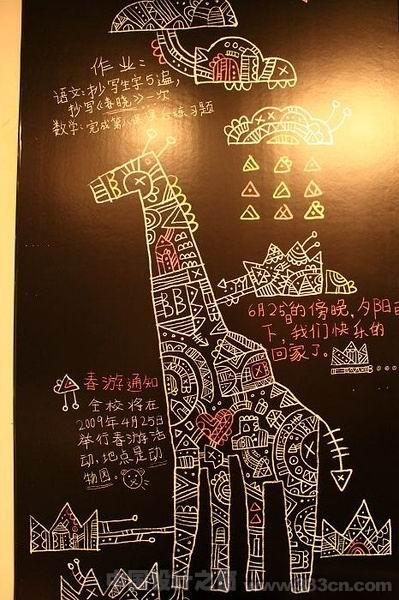 作业：
语文：抄写生字5遍，
抄写《春晓》一次
数学：完成第八课课后练习题
BBB
6月25日的傍晚，夕阳西
下，我们快乐的
回家了。
春游通知
全校将在
2009年4月25日
举行春游活
动，地点是动
物园。
中国设计之窗 www.333cn.com